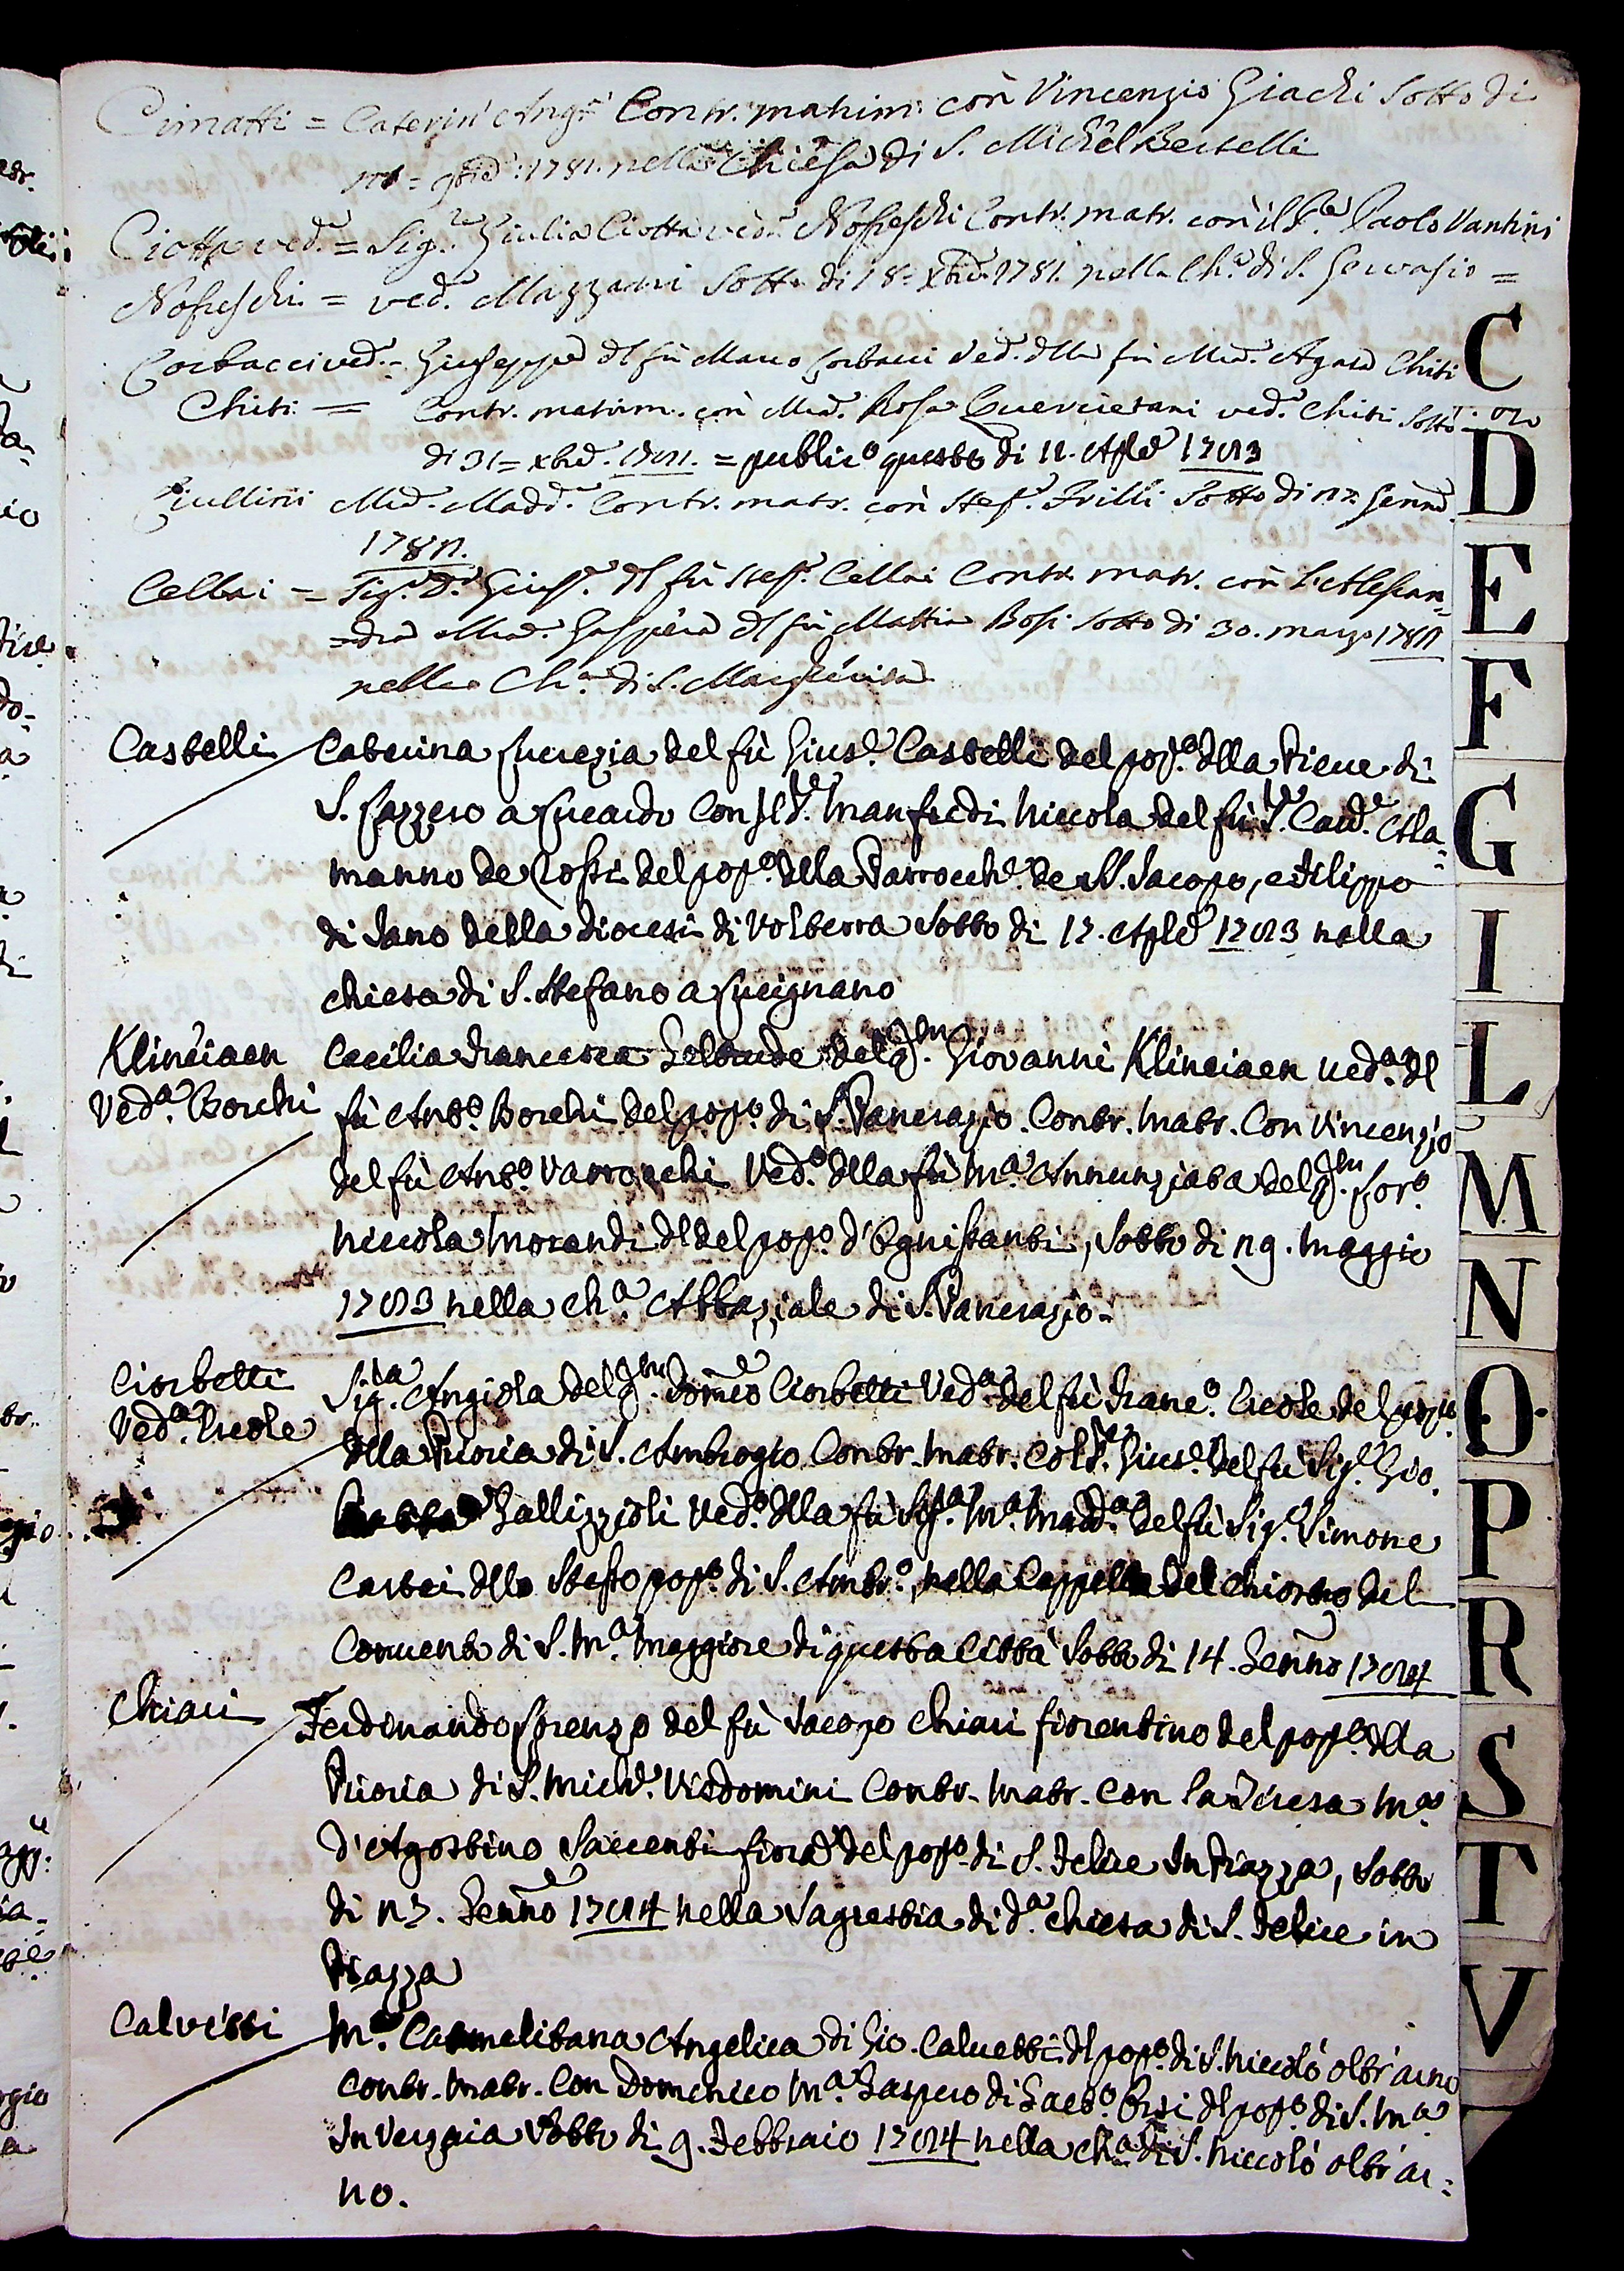 Cimatti = Caterin' Ang.ª Contr. matrim: con Vincenzio Giachi Sotto di
9bre: 1781. nella Chiesa di S. Michel Bertelli
Ciotta ved.ª = Sig.ra Giulia Ciotta ved.ª Nofreschi Contr. matr. con il S.re Paolo Vantini
Nofreschi = ved.º Mazzani Sotto di 18 = Xbre 1781. nella Ch.ª di S. Gervasio =
Corbacci ved.º = Giuseppe dl fù Marco Corbacci Ved.º dlla fù M.ª Agata Chiti
Chiti = Contr. matrim. con M.ª Rosa ved.ª Chiti Sotto
di 31 = Xbre. 1781. = publico questo di 12. Aple 1783
Ciullini M.ª Madd.ª Contr. matr. con Stef.º Frilli Sotto di 27. Genn.º
1782.
Cellai = Sig.r D.r Gius.e dl fù Stef.º Cellai Contr. matr. con L'Alesan=
=dra M.ª Gaspera dl fù Mattia Bosi Sotto di 30. marzo 1782
nella Ch.ª di S. Margherita
Castelli Caterina Lucrezia del fù Gius.e Castelli del pop.º dlla Pieve di
S. Lazzero a Lucardo Con Il S.re Manfredi Niccola del fù S.re Cav.re Ala=
manno de Rossi del pop.º dlla Parrocch.ª de SS. Jacopo, e Filippo
di Jano della Diocesi di Volterra Sotto di 17. Aple 1783 nella
chiesa di S. Stefano a Lucignano
Klinciaen Cecilia Francesca Geltrude del q.m Giovanni Klinciaen ved.ª dl
Ved.ª Borchi fù Ant.º Borchi del pop.º di S. Pancrazio. Contr. Matr. Con Vincenzio
del fù Ant.º Varrocchi Ved.º dlla fù M.ª Annunziata del q.m Lor.º
Niccola Morandi dl del pop.º d'Ognissanti, Sotto di 29. Maggio
1783 nella ch.ª Abbaziale di S. Pancrazio.
Ciorbetti Sig.ra Angiola del q.m Dom.co Ciorbetti Ved.ª del fù Franc.º Creole del pop.º
Ved.ª Creole dlla Prioria di S. Ambrogio Contr. Matr. Col S.re Gius.e del fù Sig.e Gio.
Gallizzioli Ved.º dlla fù Sig.ra M.ª Madd.ª del fù Sig.e Simone
Castri dllo Stesso pop.º di S. Ambr.º, nella Cappella del Chiostro del
Convento di S. M.ª Maggiore di questa Città Sotto di 14. Genn.º 1784
Chiari Ferdinando Lorenzo del fù Jacopo Chiari fiorentino del pop.º dlla
Prioria di S. Mich.e Visdomini Contr. Matr. Con la Teresa M.ª
d'Agostino Saccenti fior.ª del pop.º di S. Felice In Piazza, Sotto
di 27. Genn.º 1784 nella Sagrestia di d.ª chiesa di S. Felice in
Piazza
Calvetti M.ª Carmelitana Angelica di Gio. Calvetti dl pop.º di S. Niccolò oltr'arno
Contr. Matr. Con Domenico M.ª Gaspero di Gaet.º Orsi dl pop.º di S. M.ª
In Verzaia Sotto di 9. Febbraio 1784 nella ch.ª di S. Niccolò oltr'ar=
no.
C
D
E
F
G
I
L
M
N
O
P
R
S
T
V